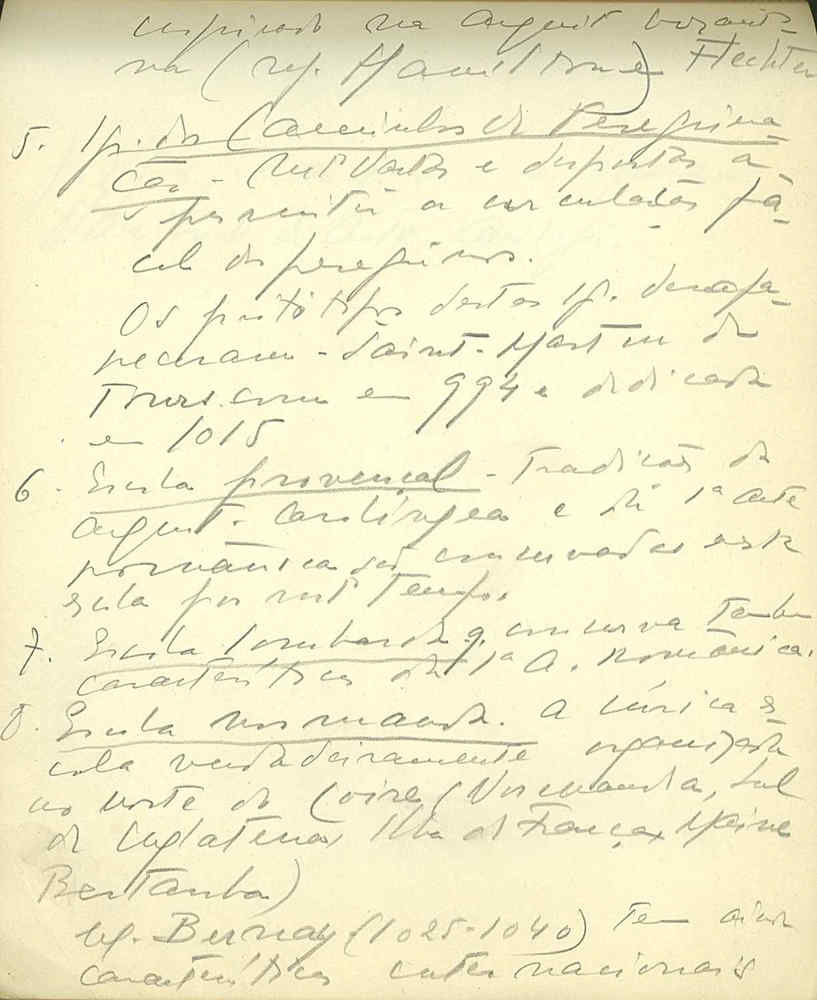 inspirado na arquit bizanti-
na (ref. Hamilton e Flechter)
5. Ig. dos Caminhos de Peregrina-
ção - Mtº vastas e dispostas a
permitir a circulação fá-
cil dos peregrinos.
Os protótipos destas Ig. desapa-
receram - Saint-Martin de
Tours em 994 e dedicada
em 1015
6. Escola provençal - Tradição da
arquit. carolíngea e da 1ª arte
românica são conservadas esta
escola por mtº tempo.
7. Escola lombarda q. conserva tambem
caracteristicas da 1ª A. Românica.
8. Escola normanda. A única es-
cola verdadeiramente organizada
no norte do Loire (Normandia, Sul
de Inglaterra, Ilha de França, Maine
Bertanha)
Bernay (1025-1040) tem ainda
caracteristicas internacionais